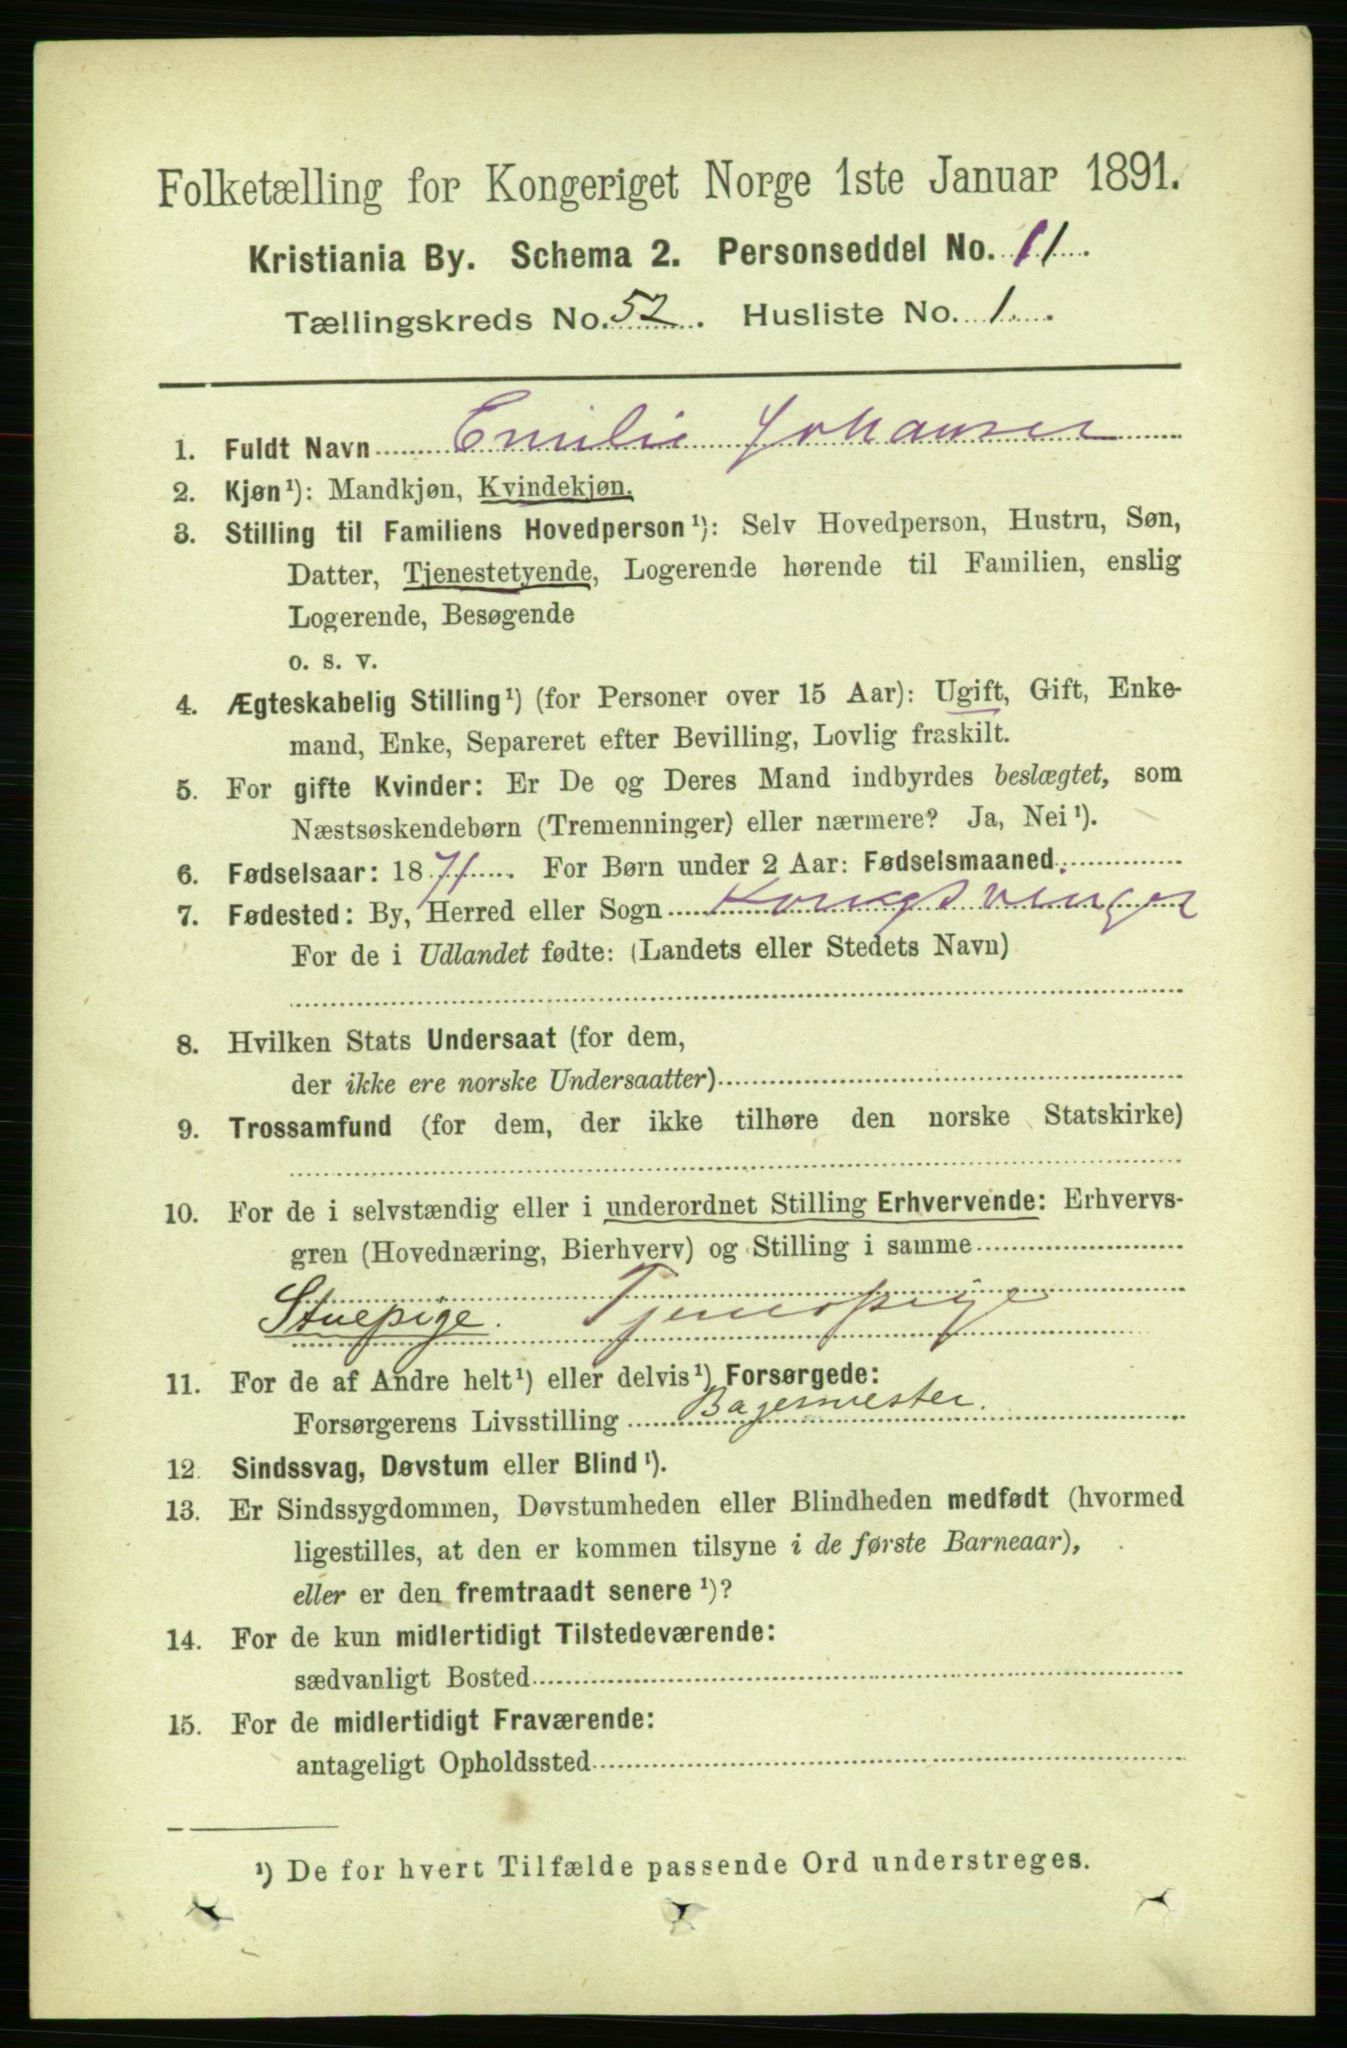 Folketælling for Kongeriget Norge 1ste Januar 1891.
Kristiania By. Schema 2. Personseddel No. 11.
Tællingskreds No. 52. Husliste No. 1.
1. Fuldt Navn Emilie Johansen
2. Kjøn¹): Mandkjøn, Kvindekjøn.
3. Stilling til Familiens Hovedperson¹): Selv Hovedperson, Hustru, Søn,
Datter, Tjenestetyende, Logerende hørende til Familien, enslig
Logerende, Besøgende
o. s. v.
4. Ægteskabelig Stilling¹) (for Personer over 15 Aar): Ugift, Gift, Enke-
mand, Enke, Separeret efter Bevilling, Lovlig fraskilt.
5. For gifte Kvinder: Er De og Deres Mand indbyrdes beslægtet, som
Næstsøskendebørn (Tremenninger) eller nærmere? Ja, Nei¹).
6. Fødselsaar: 1871. For Børn under 2 Aar: Fødselsmaaned:
7. Fødested: By, Herred eller Sogn Kongsvinger
For de i Udlandet fødte: (Landets eller Stedets Navn)
8. Hvilken Stats Undersaat (for dem,
der ikke ere norske Undersaatter)
9. Trossamfund (for dem, der ikke tilhøre den norske Statskirke)
10. For de i selvstændig eller i underordnet Stilling Erhvervende: Erhvervs-
gren (Hovednæring, Bierhverv) og Stilling i samme
Stuepige. Tjenespige
11. For de af Andre helt¹) eller delvis¹) Forsørgede:
Forsørgerens Livsstilling Bagermester.
12. Sindssvag, Døvstum eller Blind¹).
13. Er Sindssygdommen, Døvstumheden eller Blindheden medfødt (hvormed
ligestilles, at den er kommen tilsyne i de første Barneaar),
eller er den fremtraadt senere¹)?
14. For de kun midlertidigt Tilstedeværende:
sædvanligt Bosted
15. For de midlertidigt Fraværende:
antageligt Opholdssted
¹) De for hvert Tilfælde passende Ord understreges.